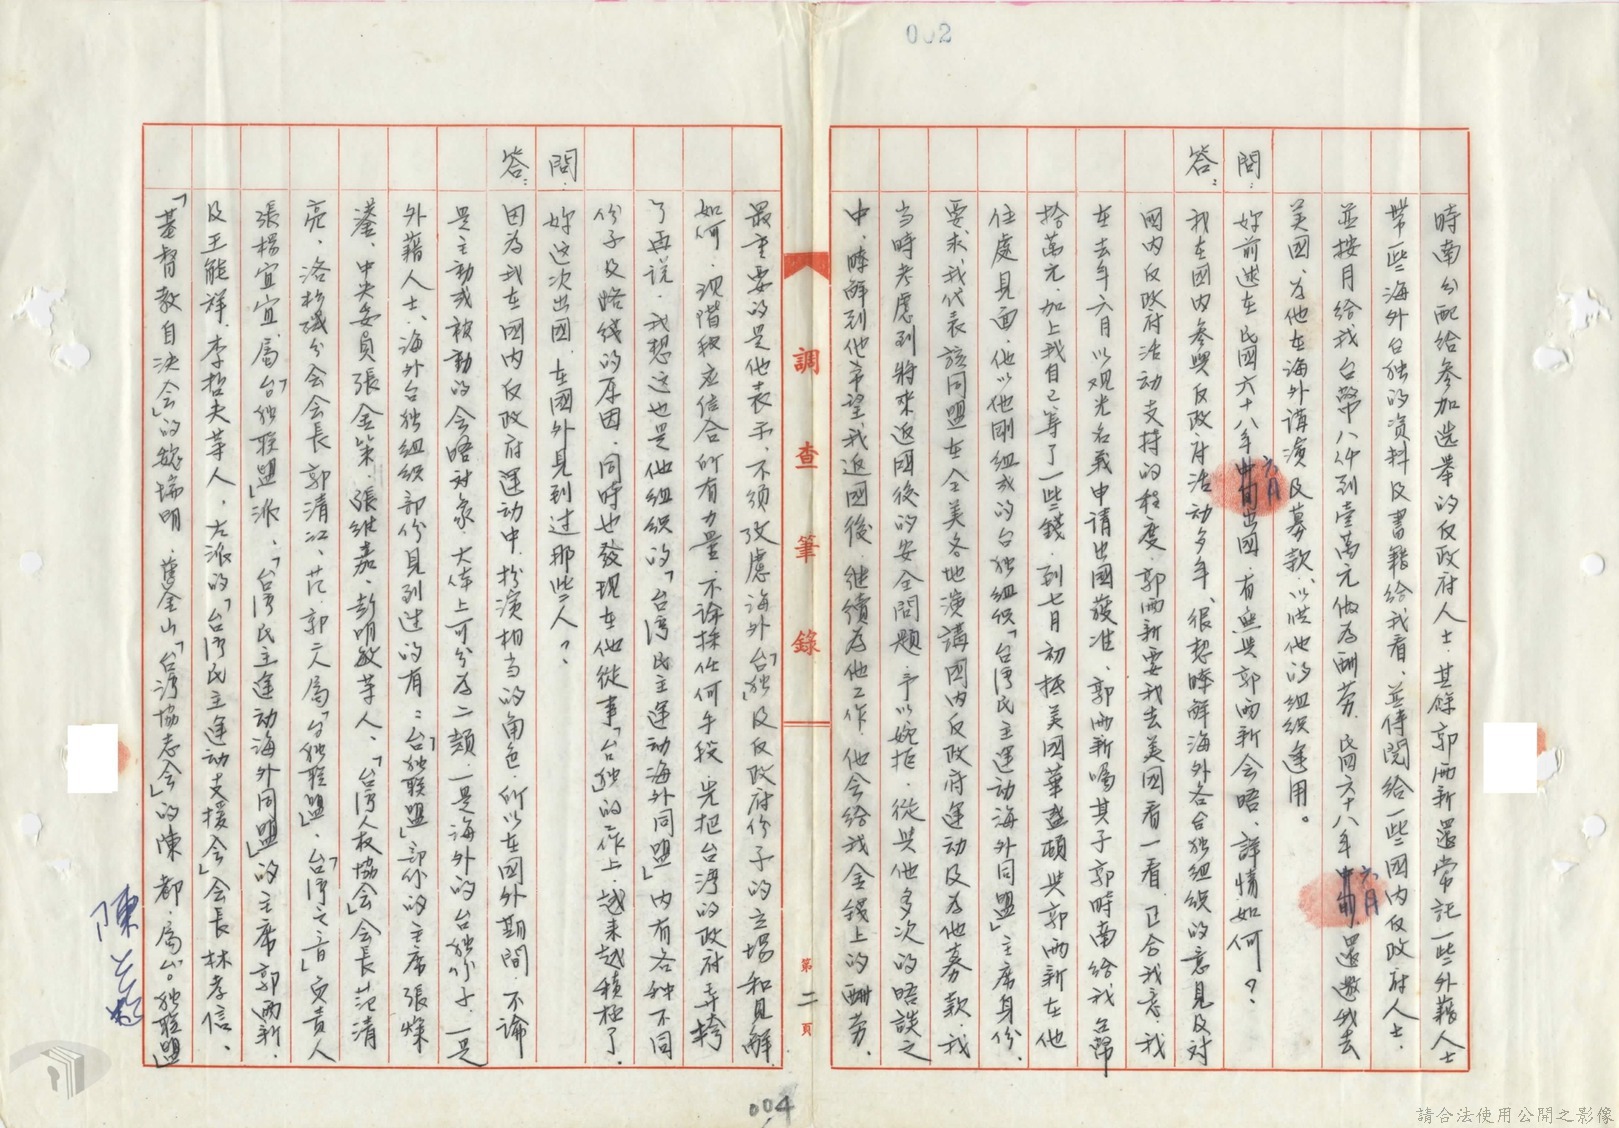 002
時南分配給參加選舉的反政府人士。其餘郭雨新還常託一些外籍人士
帶一些海外台独的資料及書籍給我看、並傳閱給一些國內反政府人士、
並按月給我台幣八仟到壹萬元做為酬劳、民國六十八年六月還邀我去
美國、为他在海外講演及募款、以供他的組織運用。
問：妳前述在民國六十八年六月出國、有無與郭雨新会晤、詳情如何？
答：我在國內參與反政府活动多年、很想瞭解海外各台独組织的意見及对
國內反政府活动支持的程度、郭雨新要我去美國看一看、正合我意、我
在去年六月以观光名義申請出國獲准、郭雨新囑其子郭時南給我台幣
拾萬元、加上我自己筹了一些錢、到七月初抵美國華盛頓與郭雨新在他
住處見面、他以他剛組成的台独組织「台灣民主運动海外同盟」主席身份、
要求我代表該同盟在全美各地演講國內反政府運动及为他募款、我
当時考慮到將來返國後的安全問題、予以婉拒、從與他多次的晤談之
中、瞭解到他希望我返國後、继續為他工作、他会給我金錢上的酬劳、
調查筆錄
第二頁
最重要的是他表示、不須攷慮海外「台独」及反政府份子的立場和見解
如何、現階段应结合所有力量、不論採任何手段、先把台湾的政府弄垮
了再说、我想这也是他組织的「台湾民主運动海外同盟」內有各种不同
份子及路线的原因、同時也發現在他從事「台独」的工作上、越来越積极了。
問：妳这次出國、在國外見到过那些人？
答：因為我在國內反政府運动中、扮演相当的角色、所以在國外期間、不論
是主动或被動的会晤对象、大体上可分为二類、一是海外的台独份子、一是
外藉人士、海外台独組织部份見到过的有：「台独联盟」部份的主席張燦
鍙、中央委員張金策、張维嘉、彭明敏等人、「台湾人权協会」会長范清
亮、洛杉磯分会会長郭清江、范、郭二人屬「台独联盟」、「台湾之音」負責人
張楊宜宜、屬「台独联盟」派、「台湾民主運动海外同盟」的主席郭雨新、
及王能祥、李哲夫等人、左派的「台湾民主運动支援会」会長林孝信、
「基督教自決会」的魏瑞明、舊金山「台湾協志会」的陳都、屬「台独联盟」
陳
004
請合法使用公開之影像